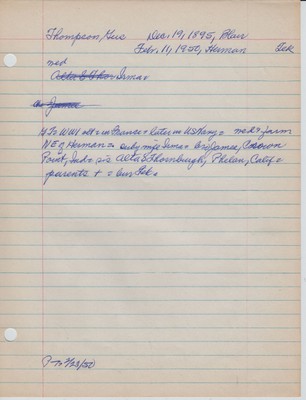 Thompson, Gus Dec 19, 1895, Blur
Febr. 11, 1950, Herman Tek
med
Alta E Thor Irma
br James
14 Fo WW1 + in France + later in US Navy med + farm
NE of Herman surv mfe Irma br James, Crown
Point, Ind sis Alta E Thornburgh, Phelan, Calif
parents + bur Tek
P-T 2/23/50